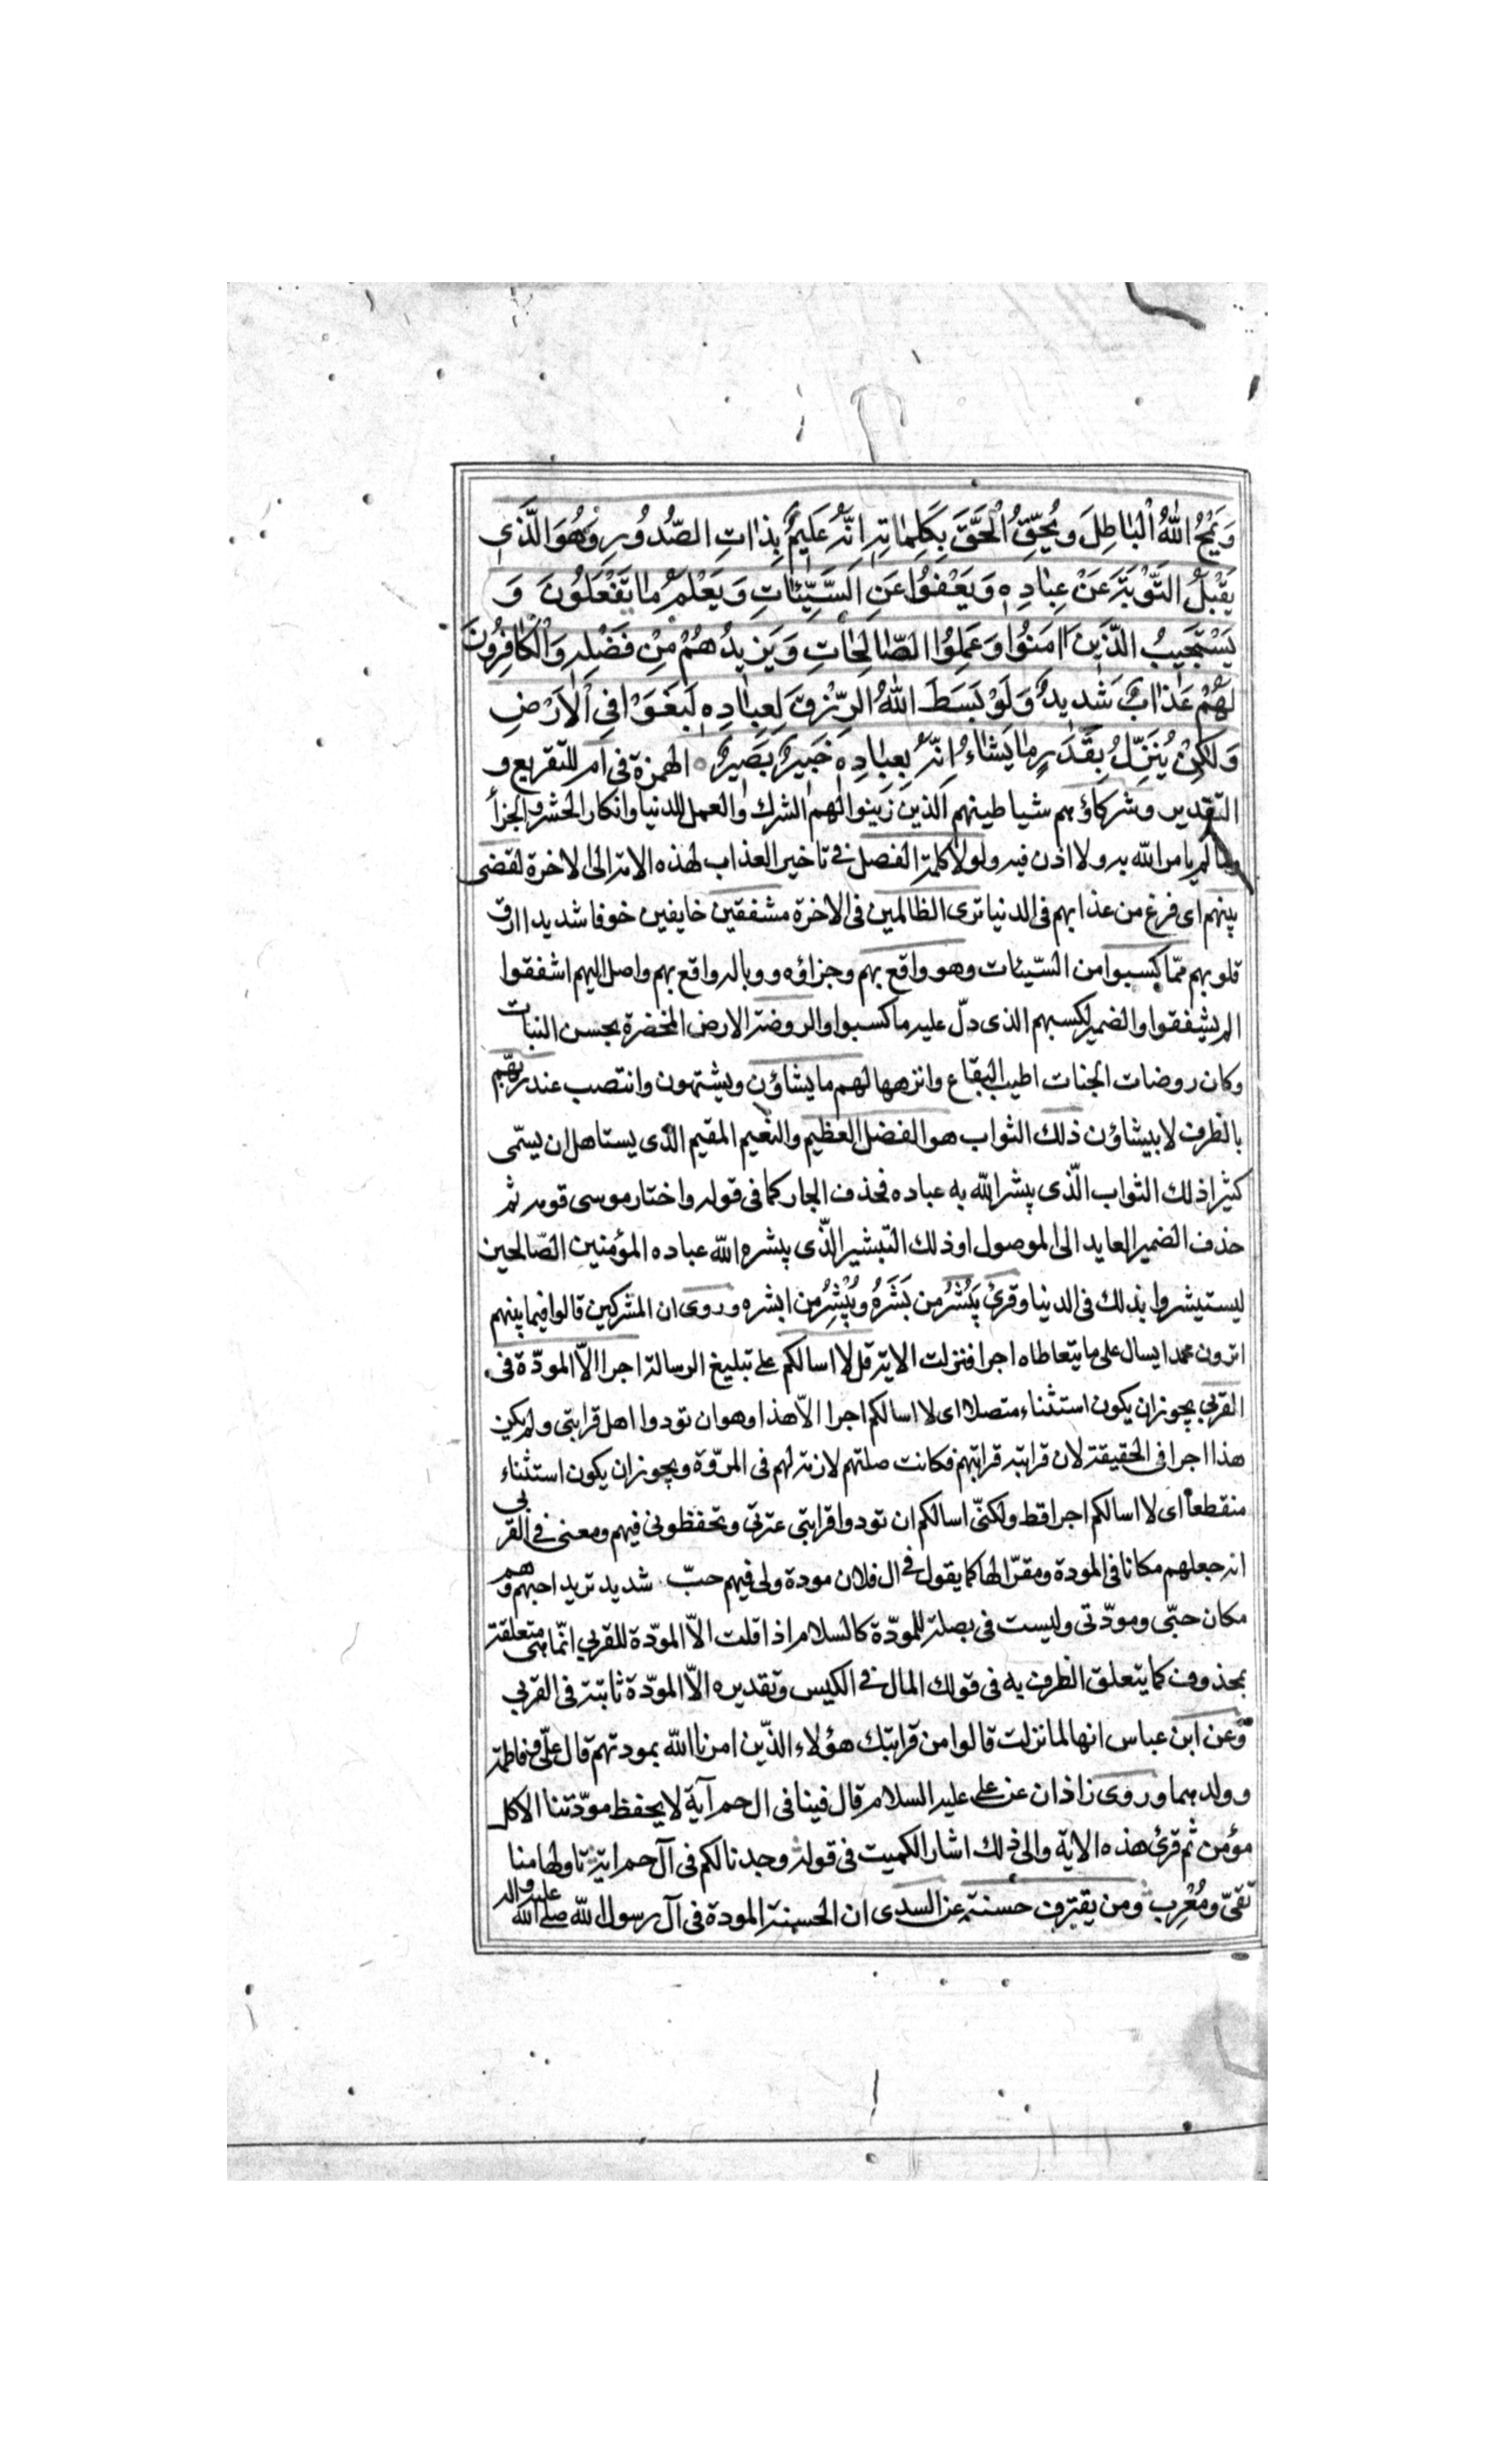 وَيَمْحُ اللّٰهُ الْبَاطِلَ وَيُحِقُّ الْحَقَّ بِكَلِمَاتِهِ اِنَّهُ عَلِيمٌ بِذَاتِ الصُّدُورِ وَهُوَ الَّذِى
يَقْبَلُ التَّوْبَةَ عَنْ عِبَادِهِ وَيَعْفُوا عَنِ السَّيِّئَاتِ وَيَعْلَمُ مَا تَفْعَلُونَ وَ
يَسْتَجِيبُ الَّذِينَ اٰمَنُوا وَعَمِلُوا الصَّالِحَاتِ وَيَزِيدُهُمْ مِنْ فَضْلِهِ وَالْكَافِرُونَ
لَهُمْ عَذَابٌ شَدِيدٌ وَلَوْ بَسَطَ اللّٰهُ الرِّزْقَ لِعِبَادِهِ لَبَغَوْا فِى الْاَرْضِ
وَلٰكِنْ يُنَزِّلُ بِقَدَرٍ مَا يَشَاءُ اِنَّهُ بِعِبَادِهِ خَبِيرٌ بَصِيرٌ الهمزة فى ام للتقريع و
التقدير وشركاؤهم شياطينهم الذين زينوا لهم الشرك والعمل للدنيا وانكار الحشر والجزأ
ما لم يامر الله به ولا اذن فيه ولولا كلمة الفصل فى تاخير العذاب لهذه الامة الى الاخرة لقضى
بينهم اى فرغ من عذابهم فى الدنيا ترى الظالمين فى الاخرة مشفقين خايفين خوفا شديدا ارق
قلوبهم ممّا كسبوا من السّيئات وهو واقع بهم وجزاؤه ووباله واقع بهم واصل اليهم اشفقوا
ام لم يشفقوا والضمير لكسبهم الذى دلّ عليه ما كسبوا والروضة الارض المخضرة بحسن النبات
وكان روضات الجنات اطيب البقاع وانزهها لهم ما يشاؤن ويشتهون وانتصب عند ربّهم
بالظرف لا بيشاؤن ذلك الثواب هو الفضل العظيم والنعيم المقيم الذى يستاهل ان يسمّى
كثيرا ذلك الثواب الّذى يبشر الله به عباده فحذف الجار كما فى قوله واختار موسى قومه ثم
حذف الضمير العايد الى الموصول او ذلك التبشير الّذى يبشره الله عباده المؤمنين الصّالحين
ليستبشروا بذلك فى الدنيا وقرئ يَبْشُرُ من بَشَرَهُ ويُبْشِرُ من ابشره وروى ان المشركين قالوا فيما بينهم
اترون محمدا يسال على ما يتعاطاه اجرا فنزلت الاية قل لا اسالكم على تبليغ الرسالة اجرا الّا المودّة فى
القربى يجوز ان يكون استثناء متصلا اى لا اسالكم اجرا الّا هذا وهو ان تودوا اهل قرابتى ولم يكن
هذا اجرا فى الحقيقة لان قرابته قرابتهم فكانت صلتهم لازمة لهم فى المروّة ويجوز ان يكون استثناء
منقطعا اى لا اسالكم اجرا قط ولكنّى اسالكم ان تودوا قرابتى عترتى وتحفظونى فيهم ومعنى فى القربى
انه جعلهم مكانا فى المودة ومقرّا لها كما يقول فى ال فلان مودة ولى فيهم حبّ شديد تريد احبهم وهم
مكان حبّى ومودّتى وليست فى بصلة للمودّة كالسلام اذا قلت الاّ المودّة للقربى انّما هى متعلقة
بمحذوف كما يتعلق الظرف به فى قولك المال فى الكيس وتقديره الاّ المودّة ثابتة فى القربى
وعن ابن عباس انها لما نزلت قالوا من قرابتك هؤلاء الذّين امرنا الله بمودتهم قال علىّ وفاطمة
وولدهما وروى زاذان عن على عليه السلام قال فينا فى ال حم آية لا يحفظ مودّتنا الا كل
مؤمن ثم قرئ هذه الاية والى ذلك اشار الكميت فى قوله وجدنا لكم فى آل حم اية تاولها منا
تقىّ ومُعْرِب ومن يقترف حسنة عن السدى ان الحسنة المودة فى آل رسول الله صلى الله عليه واله